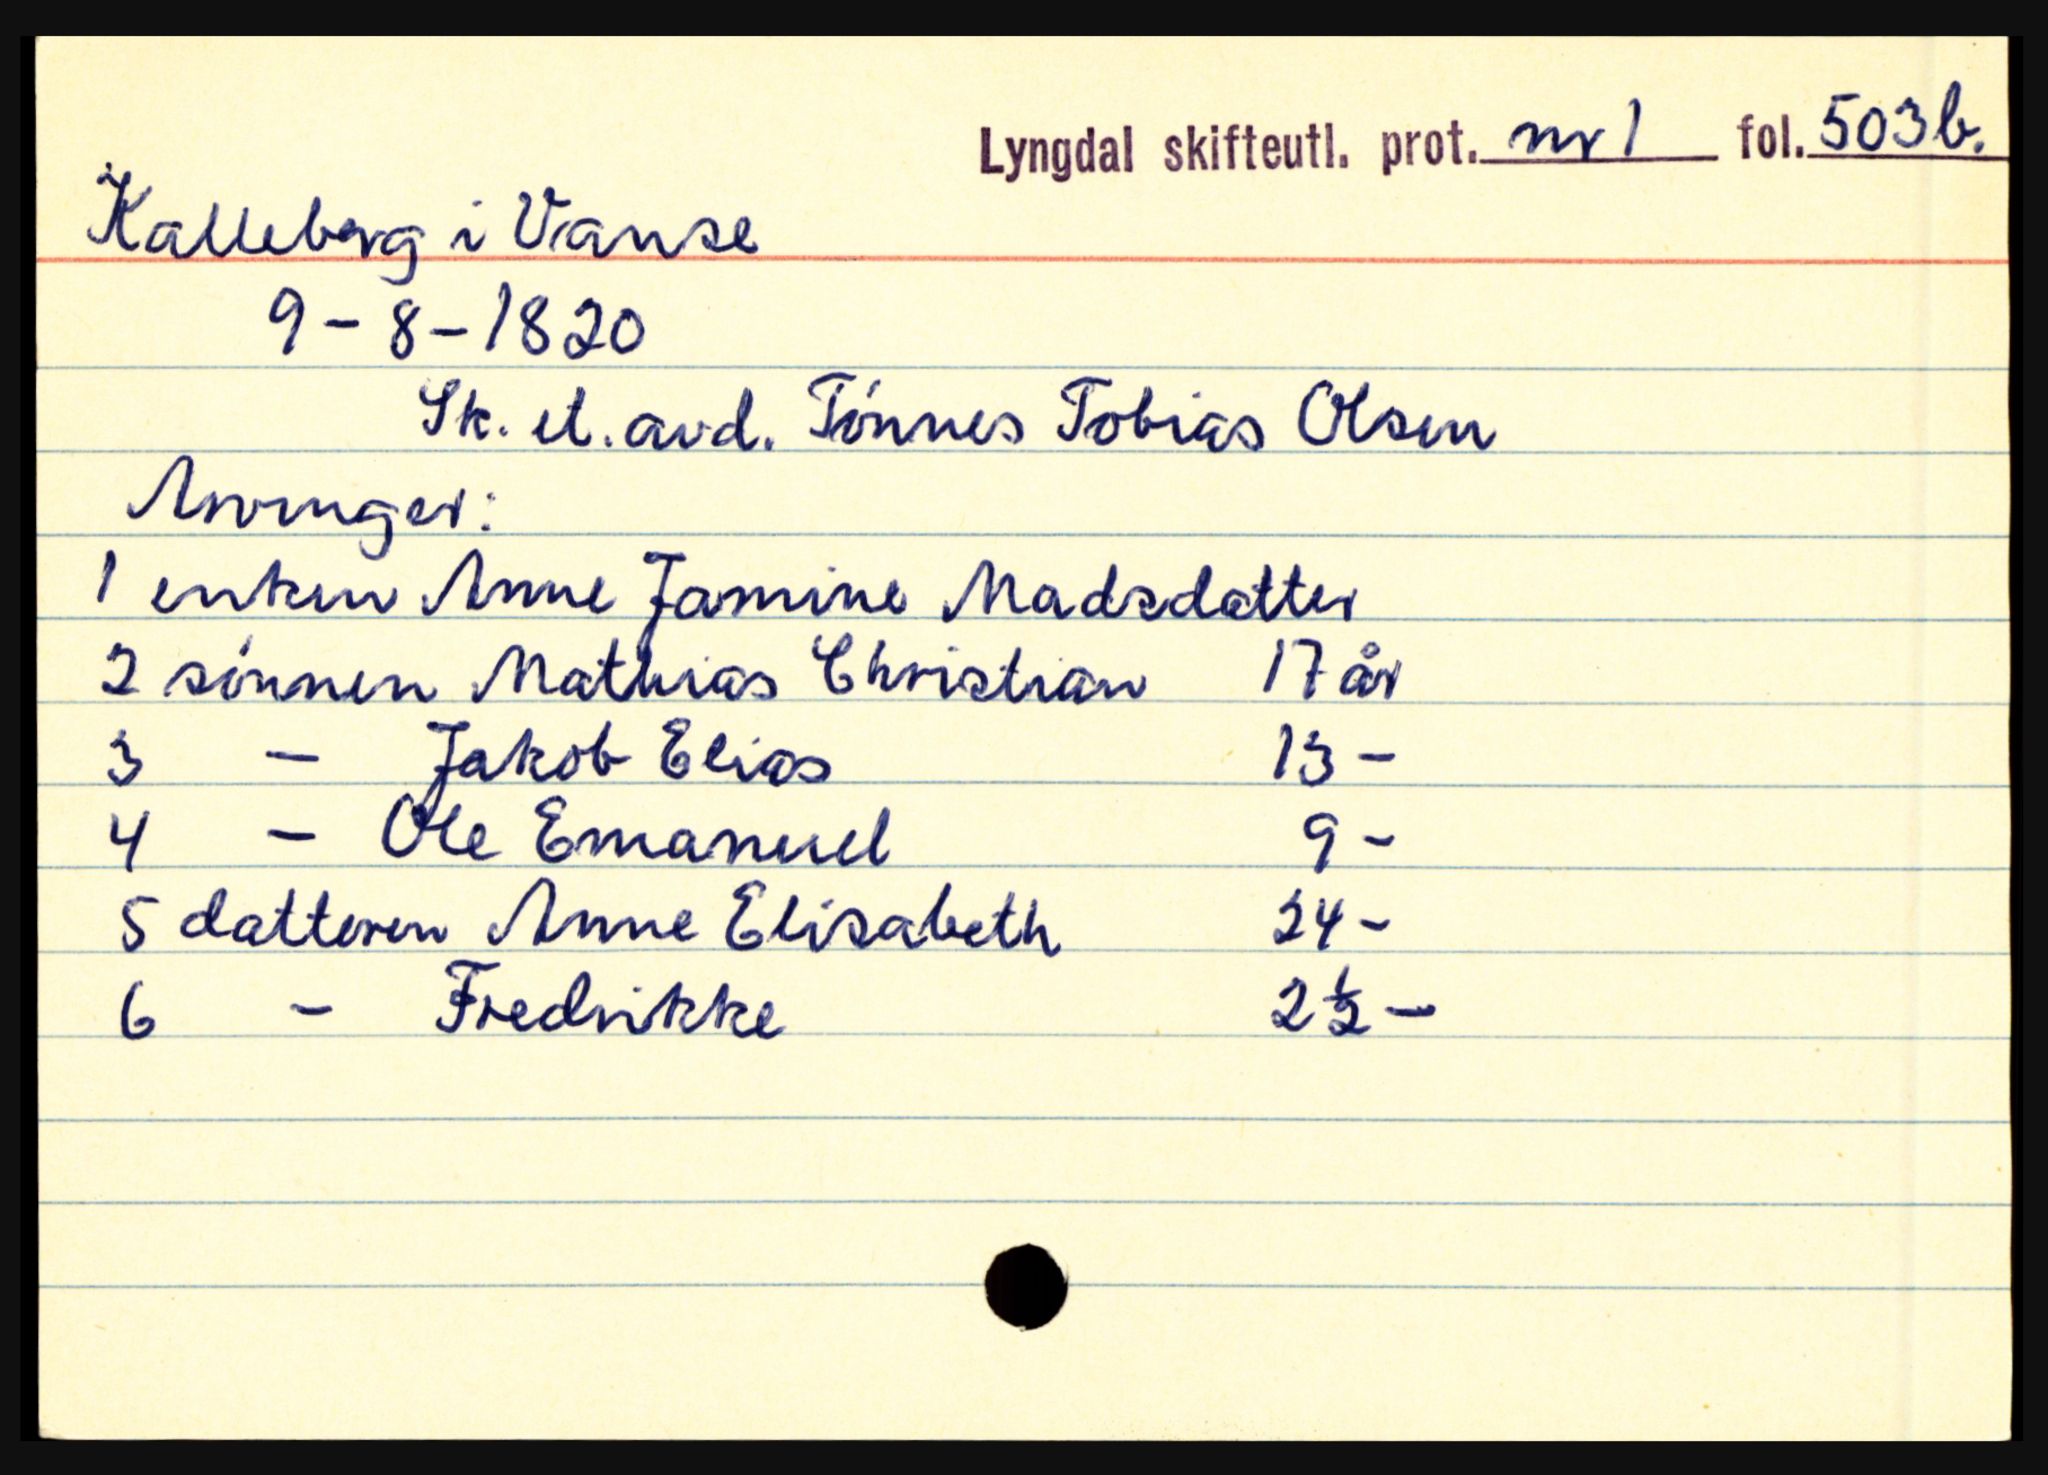 Lyngdal skifteutl. prot. nr 1 fol. 503b.
Kalleberg i Vanse
9-8-1820
Sk. et. avd. Tönnes Tobias Olsen
Arvinger:
1 enken Anne Jamine Madsdatter
2 sönnen Mathias Christian 17 år
3 - Jakob Elias 13 -
4 - Ole Emanuel 9 -
5 datteren Anne Elisabeth 24 -
6 - Fredrikke 2 1/2 -